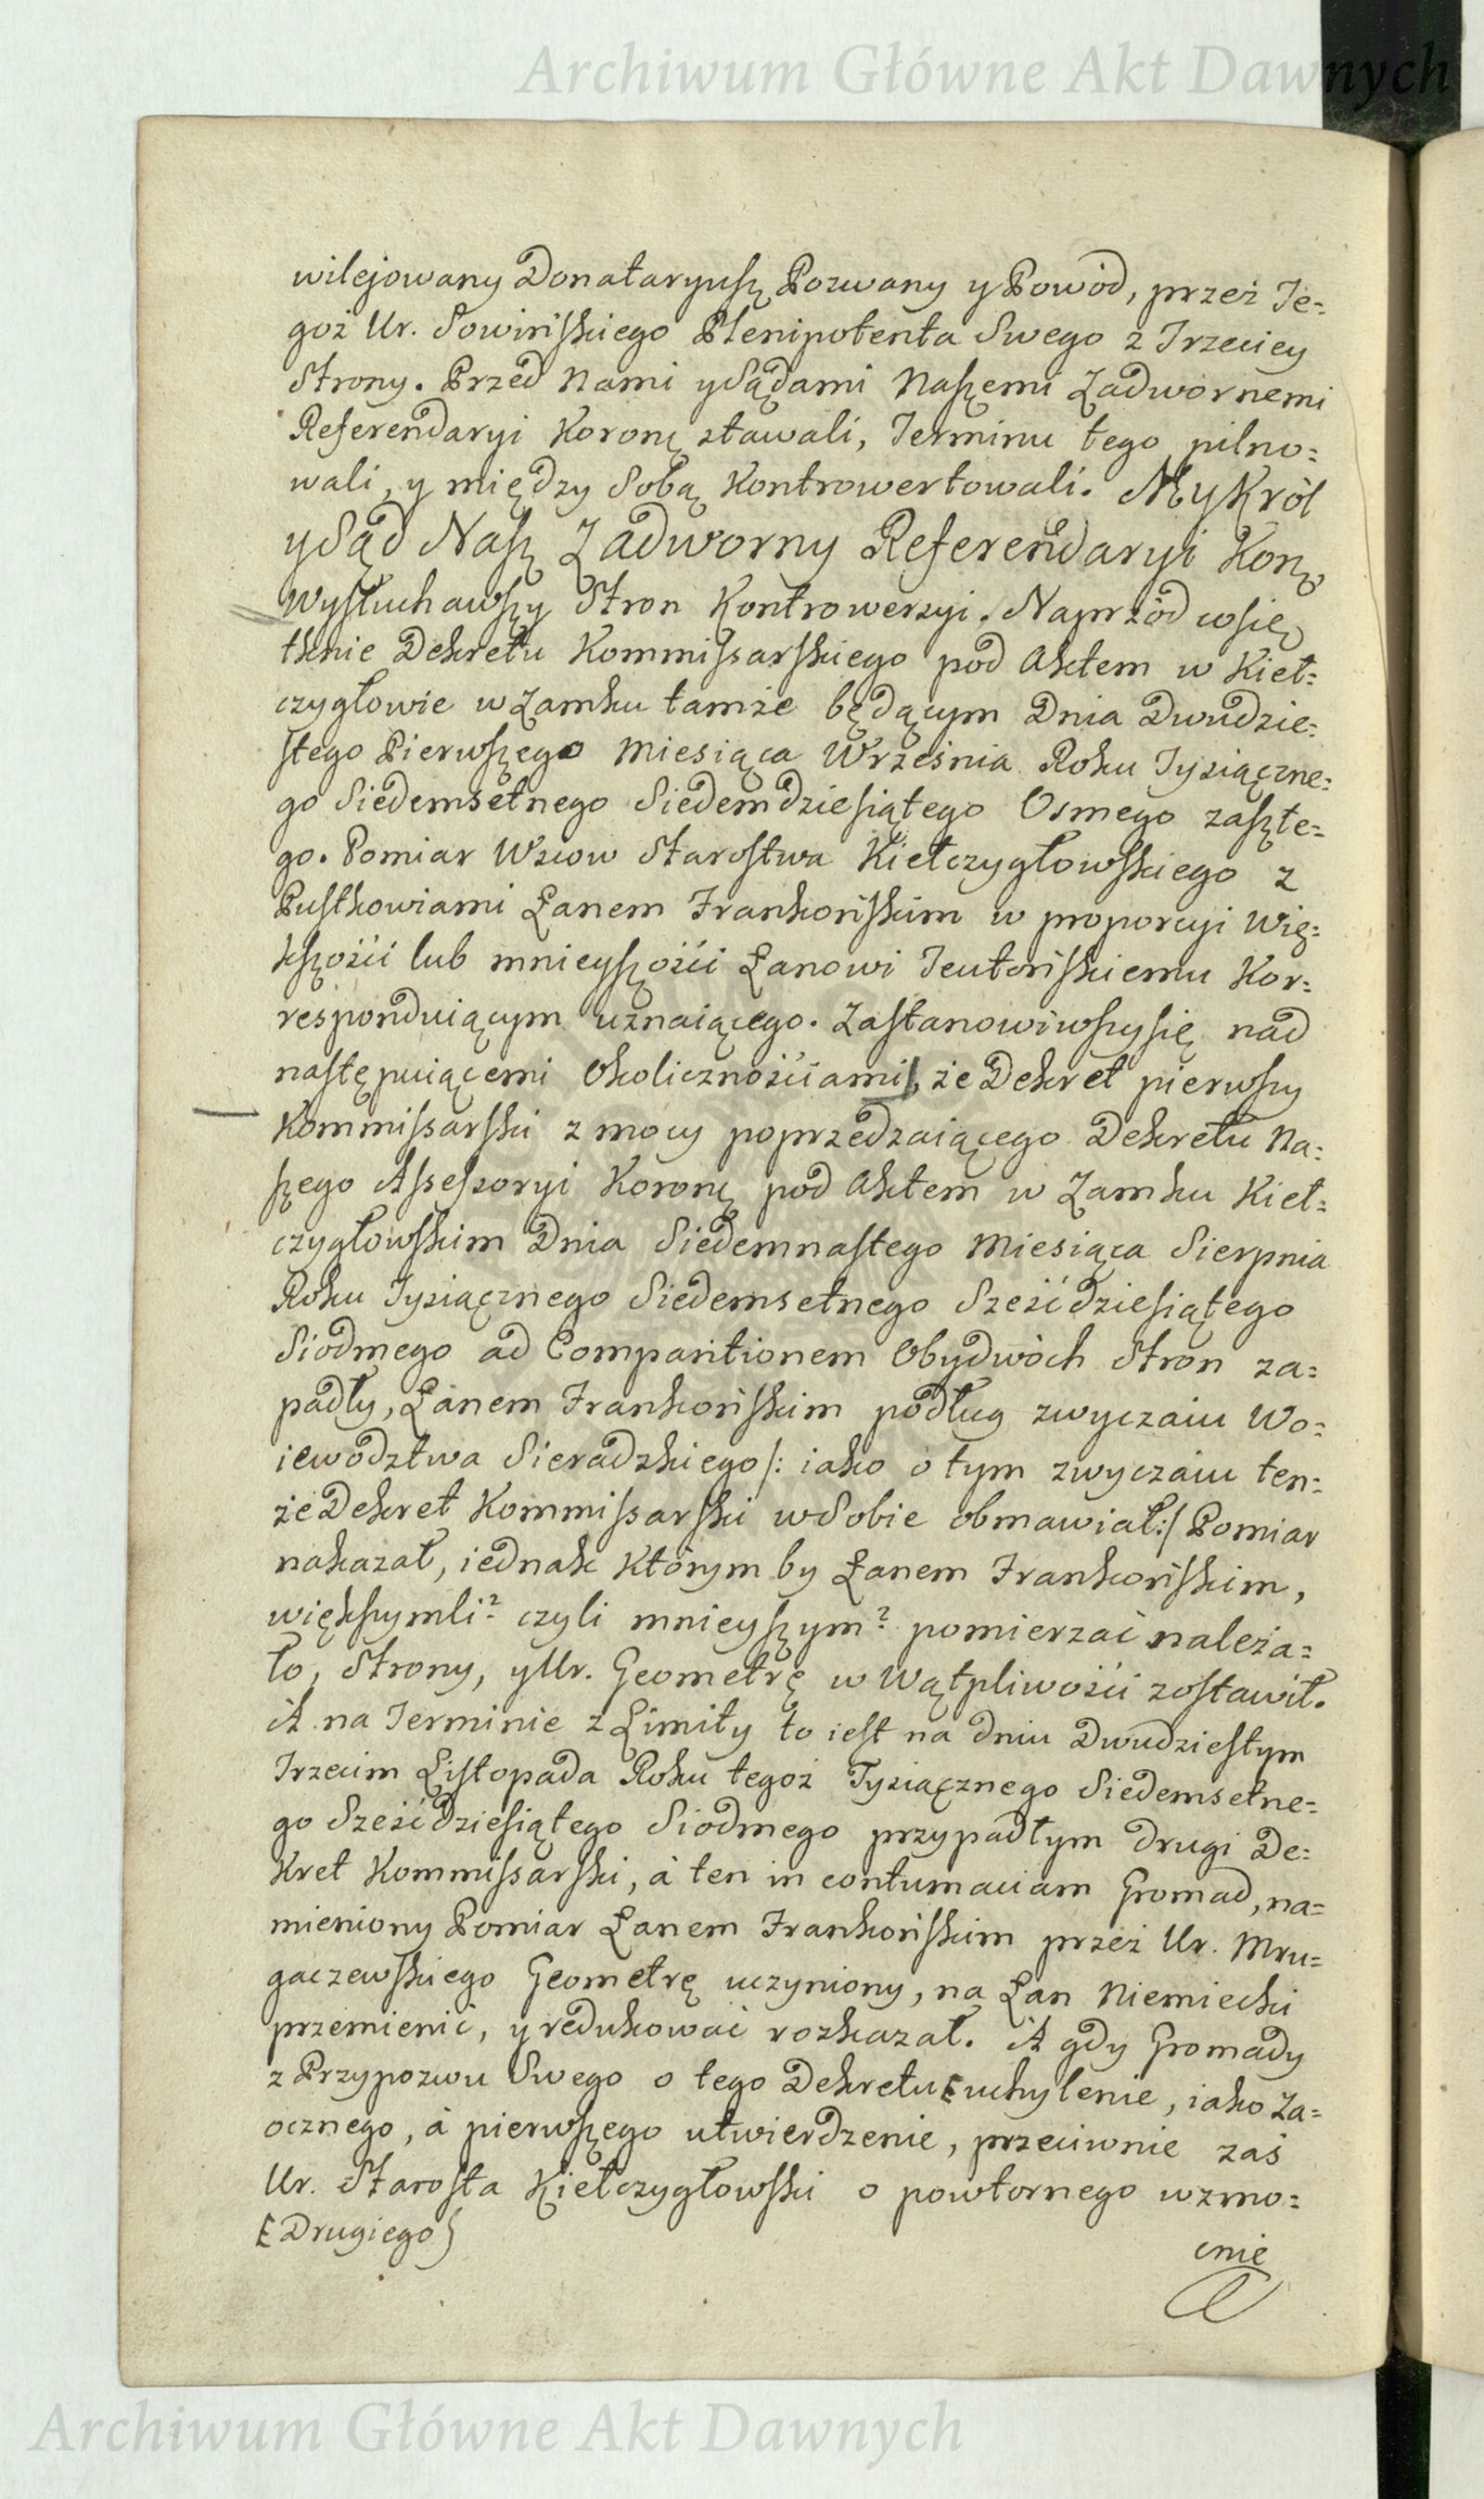 Archiwum Główne Akt Dawnych
wilejowany Donataryusz Pozwany y Powód, przez Te=
goż Ur. Sowińskiego Plenipotenta Swego z Trzeciey
Strony. Przed Nami y Sądami Naszemi Zadwornemi
Referendaryi Koronę stawali, Terminu tego pilno=
wali, y między Sobą Kontrowertowali. My Król
y Sąd Nasz Zadworny Referendaryi Konę
Wysłuchawszy Stron Kontrowersyi. Naprzód wsię
tknie Dekretu Kommissarskiego pod Aktem w Kieł=
czygłowie w Zamku tamże będącym Dnia Dwudzie=
stego Pierwszego Miesiąca Września Roku Tysiączne=
go Siedemsetnego Siedemdziesiątego Osmego zaszłe=
go. Pomiar Wsiow Starostwa Kiełczygłowskiego z
Pustkowiami Łanem Frankońskim w proporcyi Wię=
kszośći lub mnieyszośći Łanowi Teutońskiemu Kor=
responduiącym uznaiącego. Zastanowiwszy się nad
następuiącemi Okolicznośćiami, że Dekret pierwszy
Kommissarski z mocy poprzedzaiącego Dekretu Na=
szego Assessoryi Koronę pod Aktem w Zamku Kieł=
czygłowskim Dnia Siedemnastego Miesiąca Sierpnia
Roku Tysiącznego Siedemsetnego Sześćdziesiątego
Siodmego ad Comparitionem Obydwóch Stron za=
padły, Łanem Frankońskim podług zwyczaiu Wo=
iewodztwa Sieradzkiego /: iako o tym zwyczaiu ten=
że Dekret Kommissarski w Sobie obmawiał :/ Pomiar
nakazał, iednak Którym by Łanem Frankońskim,
większymli? czyli mnieyszym? pomierzać należa=
ło, Strony, y Ur. Geometrę w Wątpliwośći zostawił.
A na Terminie z Limity to iest na dniu Dwudziestym
Trzecim Listopada Roku tegoż Tysiącznego Siedemsetne=
go Sześćdziesiątego Siodmego przypadłym drugi De=
kret Kommissarski, á ten in contumaciam Gromad, na=
mieniony Pomiar Łanem Frankońskim przez Ur. Mru=
gaczewskiego Geometrę uczyniony, na Łan Niemiecki
przemienić, y redukować rozkazał. A gdy Gromady
z Przypozwu Swego o tego Dekretu [ uchylenie, iako Za=
ocznego, á pierwszego utwierdzenie, przeciwnie zaś
Ur. Starosta Kiełczygłowski o powtornego wzmo=
[ Drugiego }
cnie
Archiwum Główne Akt Dawnych